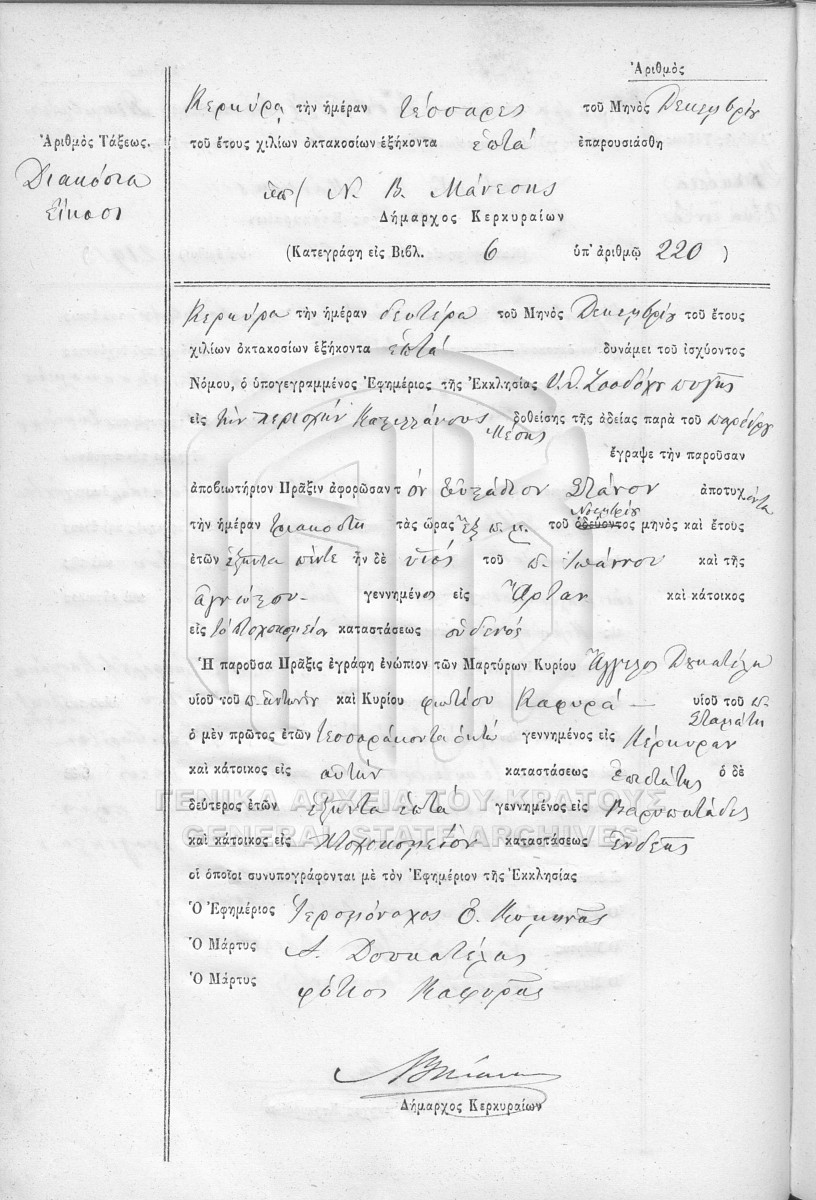 Ἀριθμὸς
Κερκύρᾳ τὴν ἡμέραν τέσσαρες τοῦ Μηνὸς Δεκεμβρίου
Ἀριθμὸς Τάξεως.
Διακόσια
Είκοσι
τοῦ ἔτους χιλίων ὀκτακοσίων ἑξήκοντα ἑπτά ἐπαρουσιάσθη
Ν. Β. Μάνεσης
Δήμαρχος Κερκυραίων
(Κατεγράφη εἰς Βιβλ. 6 ὑπ' ἀριθμῷ 220 )
Κερκύρᾳ τὴν ἡμέραν δευτέρα τοῦ Μηνὸς Δεκεμβρίου τοῦ ἔτους
χιλίων ὀκτακοσίων ἑξήκοντα ἑπτά δυνάμει τοῦ ἰσχύοντος
Νόμου, ὁ ὑπογεγραμμένος Ἐφημέριος τῆς Ἐκκλησίας Ζωοδόχου πηγῆς
εἰς τὴν περιοχὴν Καστελλάνους Μέσης δοθείσης τῆς ἀδείας παρὰ τοῦ παρέδρου
ἔγραψε τὴν παροῦσαν
ἀποβιωτήριον Πρᾶξιν ἀφορῶσαν τὸν Σπάνον ἀποτυχόντα
τὴν ἡμέραν τριακοστὴ τὰς ὥρας ἕξ π. μ. τοῦ ὁδεύοντος Νοεμβρίου μηνὸς καὶ ἔτους
ἐτῶν ἑξήντα πέντε ἦν δὲ υἱός τοῦ π. Ἰωάννου καὶ τῆς
αγνώστου γεννημένος εἰς Ἄρταν καὶ κάτοικος
εἰς τὸ πτοχοκομείον καταστάσεως οὐδενός
Ἡ παροῦσα Πρᾶξις ἐγράφη ἐνώπιον τῶν Μαρτύρων Κυρίου Ἄγγελος Δουκατέλη
υἱοῦ τοῦ π. Αντωνίου καὶ Κυρίου φωτίου Καφυρά υἱοῦ τοῦ π. Σταμάτη
ὁ μὲν πρῶτος ἐτῶν τεσσαράκοντα ὀκτώ γεννημένος εἰς Κέρκυραν
καὶ κάτοικος εἰς αυτήν καταστάσεως ἐπιστάτης ὁ δὲ
δεύτερος ἐτῶν ἑξήντα ἑπτά γεννημένος εἰς Βαρυπατάδες
καὶ κάτοικος εἰς πτοχοκομείον καταστάσεως ἐνδεής
οἱ ὁποῖοι συνυπογράφονται μὲ τὸν Ἐφημέριον τῆς Ἐκκλησίας
Ὁ Ἐφημέριος Ἱερομόναχος Κομηνὸς
Ὁ Μάρτυς Α. Δουκατέλης
Ὁ Μάρτυς φότιος Καφυρᾶς
Δήμαρχος Κερκυραίων
ΓΕΝΙΚΑ ΑΡΧΕΙΑ ΤΟΥ ΚΡΑΤΟΥΣ
GENERAL STATE ARCHIVES